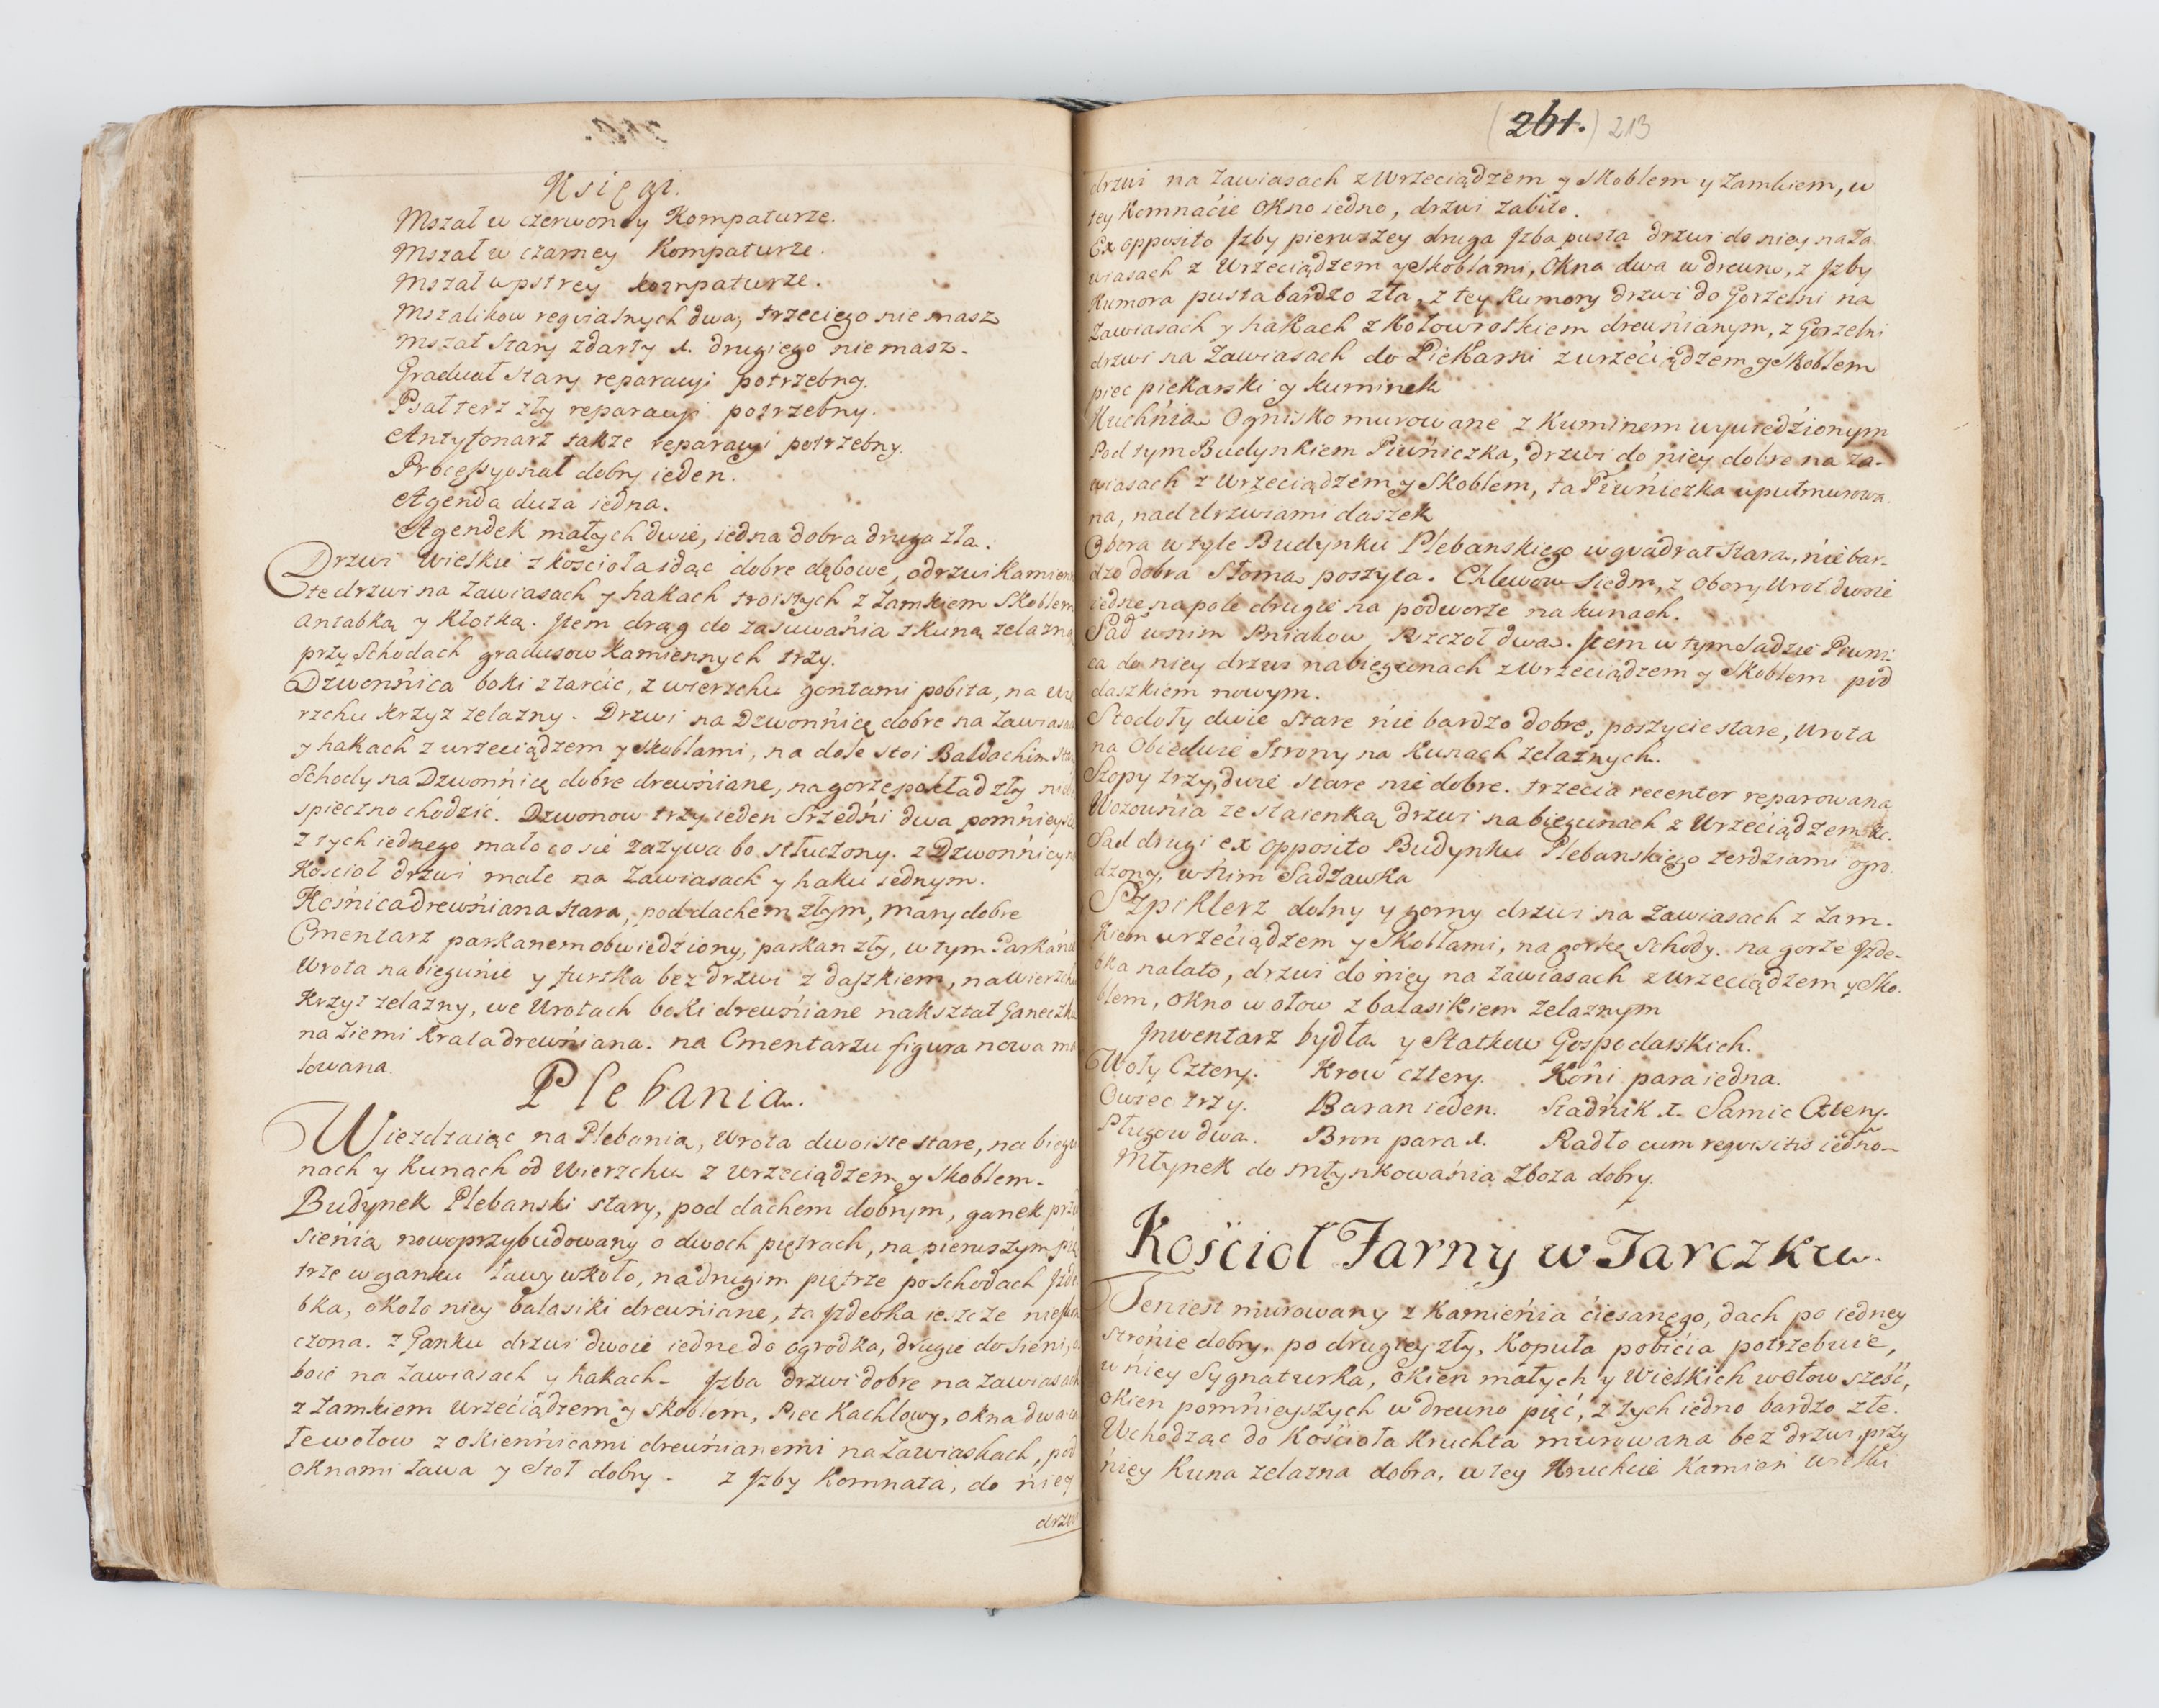 Księgi.
Mszał w czerwoney Kompaturze.
Mszał w czarney Kompaturze.
Mszał w pstrey kompaturze.
Mszalikow requialnych dwa, trzeciego nie masz
Mszał Stary zdarty 1. drugiego nie masz.
Graduał Stary reparacyi potrzebny.
Psałterz zły reparacyi potrzebny.
Antyfonarz także reparacyi potrzebny.
Processyonał dobry ieden.
Agenda duża iedna.
Agendek małych dwie, iedna dobra druga zła.
Drzwi Wielkie z kościoła idąc dobre dębowe, odrzwi Kamien
te drzwi na Zawiasach y hakach troistych z Zamkiem Skoblem
antabką y Klotką. Jtem drąg do zasuwania z kuną żelazną
przy Schodach gradusow Kamiennych trzy.
Dzwonnica boki z tarcic, z wierzchu gontami pobita, na Wie
rzchu krzyż żelazny. Drzwi na Dzwonnicę dobre na Zawiasach
y hakach z wrzeciądzem y skoblami, na dole stoi Baldachim
Schody na Dzwonnicę dobre drewniane, na gorze pokład zły
spieczno chodzić. Dzwonow trzy ieden Srzedni dwa pomnieysze
z tych iednego mało co się zażywa bo stłuczony. z Dzwonnicy
Kościoł drzwi małe na Zawiasach y haku iednym.
Kośnica drewniana stara, pod dachem złym, mary dobre
Cmentarz parkanem obwiedziony, parkan zły, w tym Parkanie
Wrota na biegunie y furtka bez drzwi z daszkiem, na wierzchu
Krzyż żelazny, we Wrotach boki drewniane nakształt Ganeczku
na ziemi krata drewniana. na Cmentarzu figura nowa ma
lowana.
Plebania.
Wieżdżaiąc na Plebanią, Wrota dwoiste stare, na biegu
nach y Kunach od Wierzchu z wrzeciądzem y Skoblem.
Budynek Plebanski stary, pod dachem dobrym, ganek przed
sienią nowo przybudowany o dwoch piętrach, na pierwszym pię
trze w ganku ławy wkoło, na drugim piętrze po Schodach Jzde
bka, około niey balasiki drewniane, ta Jzdebka ieszcze nieskon
czona. z Ganku drzwi dwoie iedne do ogrodka, drugie do Sieni, o
boie na Zawiasach y hakach. Jzba drzwi dobre na Zawiasach
z Zamkiem wrzeciądzem y skoblem, Piec Kachlowy, okna dwa
łe w ołow z okiennicami drewnianemi na Zawiaskach, pod
oknami Ława y Stoł dobry. z Jzby Komnata, do niey
drzwi
(261.) 213
drzwi na Zawiasach z Wrzeciądzem y Skoblem y Zamkiem, w
tey Komnacie okno iedno, drzwi zabito.
Ex opposito Jzby pierwszey druga Jzba pusta drzwi do niey na Za
wiasach z Wrzeciądzem y Skoblami, Okna dwa w drewno, z Jzby
Kumora pusta bardzo zła, z tey Kumory drzwi do Gorzelni na
Zawiasach y hakach z Kołowrotkiem drewnianym, z Gorzelni
drzwi na Zawiasach do Piekarni z wrzeciądzem y Skoblem
piec piekarski y kuminek
Kuchnia Ognisko murowane z Kuminem wywiedzionym
Pod tym Budynkiem Piwniczka, drzwi do niey dobre na Za-
wiasach z Wrzeciądzem y Skoblem, ta Piwniczka wpułmurowa
na, nad drzwiami daszek
Obora w tyle Budynku Plebanskiego w qvadrat Stara, nie bar-
dzo dobra Słoma poszyta. Chlewow Siedm, z Obory Wrot dwoie
iedne na pole drugie na podworze na kunach.
Sad w nim Pniakow Pszczoł dwa. Jtem w tym Sadzie Piwni-
ca do niey drzwi na biegunach z Wrzeciądzem y Skoblem pod
daszkiem nowym.
Stodoły dwie Stare nie bardzo dobre, poszycie stare, Wrota
na Obiedwie Strony na Kunach żelaznych.
Szopy trzy, dwie stare nie dobre. trzecia recenter reparowana
Wozownia ze staienką drzwi na biegunach z Wrzeciądzem &c.
Sad drugi ex opposito Budynku Plebanskiego żerdziami ogro-
dzony, w nim Sadzawka
Szpiklerz dolny y gorny drzwi na Zawiasach z Zam-
kiem wrzeciądzem y Skoblami, na gorkę Schody. na gorze Jzde-
bka na lato, drzwi do niey na Zawiasach z wrzeciądzem y Sko-
blem, okno w ołow z balasikiem żelaznym
Jnwentarz bydła y Statkow Gospodarskich.
Woły Cztery. Krow cztery. Koni para iedna.
Owiec trzy. Baran ieden. Stadnik 1. Samic Cztery.
Pługow dwa. Bron para 1. Radło cum requisitis iedno
Młynek do młynkowania Zboża dobry.
Kościoł Farny w Tarczku.
Ten iest murowany z Kamienia ciesanego, dach po iedney
stronie dobry, po drugiey zły, Kopuła pobicia potrzebuie,
w niey Sygnaturka, okien małych y Wielkich w ołow sześć,
okien pomnieyszych w drewno pięć, z tych iedno bardzo złe.
Wchodząc do Kościoła Kruchta murowana bez drzwi, przy
niey Kuna żelazna dobra, w tey Kruchcie Kamień wielki